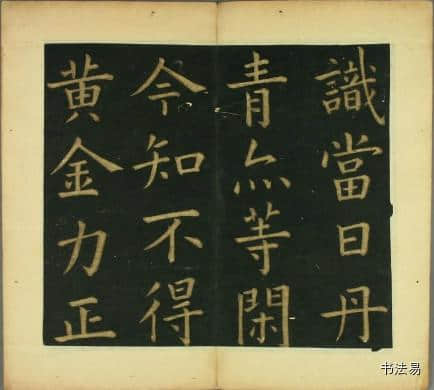 識當日丹
青亦等閑
今知不得
黄金力正
书法易